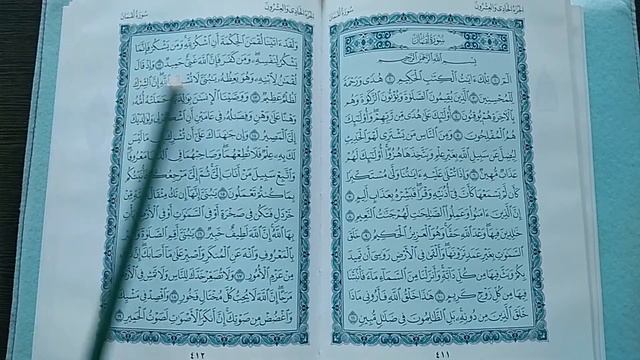 الجزء الحادي والعشرون
سورة لقمان
سورة لقمان
بسم الله الرحمن الرحيم
الٓمٓ ۝١ تِلۡكَ ءَايَٰتُ ٱلۡكِتَٰبِ ٱلۡحَكِيمِ ۝٢ هُدٗى وَرَحۡمَةٗ
لِّلۡمُحۡسِنِينَ ۝٣ ٱلَّذِينَ يُقِيمُونَ ٱلصَّلَوٰةَ وَيُؤۡتُونَ ٱلزَّكَوٰةَ وَهُم
بِٱلۡأٓخِرَةِ هُمۡ يُوقِنُونَ ۝٤ أُوْلَٰٓئِكَ عَلَىٰ هُدٗى مِّن رَّبِّهِمۡۖ وَأُوْلَٰٓئِكَ
هُمُ ٱلۡمُفۡلِحُونَ ۝٥ وَمِنَ ٱلنَّاسِ مَن يَشۡتَرِي لَهۡوَ ٱلۡحَدِيثِ
لِيُضِلَّ عَن سَبِيلِ ٱللَّهِ بِغَيۡرِ عِلۡمٖ وَيَتَّخِذَهَا هُزُوًاۚ أُوْلَٰٓئِكَ لَهُمۡ
عَذَابٞ مُّهِينٞ ۝٦ وَإِذَا تُتۡلَىٰ عَلَيۡهِ ءَايَٰتُنَا وَلَّىٰ مُسۡتَكۡبِرٗا
كَأَن لَّمۡ يَسۡمَعۡهَا كَأَنَّ فِيٓ أُذُنَيۡهِ وَقۡرٗاۖ فَبَشِّرۡهُ بِعَذَابٍ أَلِيمٍ ۝٧
إِنَّ ٱلَّذِينَ ءَامَنُواْ وَعَمِلُواْ ٱلصَّٰلِحَٰتِ لَهُمۡ جَنَّٰتُ ٱلنَّعِيمِ ۝٨
خَٰلِدِينَ فِيهَاۖ وَعۡدَ ٱللَّهِ حَقّٗاۚ وَهُوَ ٱلۡعَزِيزُ ٱلۡحَكِيمُ ۝٩ خَلَقَ
ٱلسَّمَٰوَٰتِ بِغَيۡرِ عَمَدٖ تَرَوۡنَهَاۖ وَأَلۡقَىٰ فِي ٱلۡأَرۡضِ رَوَٰسِيَ أَن تَمِيدَ
بِكُمۡ وَبَثَّ فِيهَا مِن كُلِّ دَآبَّةٖۚ وَأَنزَلۡنَا مِنَ ٱلسَّمَآءِ مَآءٗ فَأَنۢبَتۡنَا
فِيهَا مِن كُلِّ زَوۡجٖ كَرِيمٍ ۝١٠ هَٰذَا خَلۡقُ ٱللَّهِ فَأَرُونِي مَاذَا
خَلَقَ ٱلَّذِينَ مِن دُونِهِۦۚ بَلِ ٱلظَّٰلِمُونَ فِي ضَلَٰلٖ مُّبِينٖ ۝١١
٤١١
الجزء الحادي والعشرون
سورة لقمان
وَلَقَدۡ ءَاتَيۡنَا لُقۡمَٰنَ ٱلۡحِكۡمَةَ أَنِ ٱشۡكُرۡ لِلَّهِۚ وَمَن يَشۡكُرۡ فَإِنَّمَا
يَشۡكُرُ لِنَفۡسِهِۦۖ وَمَن كَفَرَ فَإِنَّ ٱللَّهَ غَنِيٌّ حَمِيدٞ ۝١٢ وَإِذۡ قَالَ
لُقۡمَٰنُ لِٱبۡنِهِۦ وَهُوَ يَعِظُهُۥ يَٰبُنَيَّ لَا تُشۡرِكۡ إِنَّ ٱلشِّرۡكَ
لَظُلۡمٌ عَظِيمٞ ۝١٣ وَوَصَّيۡنَا ٱلۡإِنسَٰنَ بِوَٰلِدَيۡهِ حَمَلَتۡهُ أُمُّهُۥ
وَهۡنًا عَلَىٰ وَهۡنٖ وَفِصَٰلُهُۥ فِي عَامَيۡنِ أَنِ ٱشۡكُرۡ لِي وَلِوَٰلِدَيۡكَ
إِلَيَّ ٱلۡمَصِيرُ ۝١٤ وَإِن جَٰهَدَاكَ عَلَىٰٓ أَن تُشۡرِكَ بِي مَا لَيۡسَ
لَكَ بِهِۦ عِلۡمٞ فَلَا تُطِعۡهُمَاۖ وَصَاحِبۡهُمَا فِي ٱلدُّنۡيَا مَعۡرُوفٗاۖ
وَٱتَّبِعۡ سَبِيلَ مَنۡ أَنَابَ إِلَيَّۚ ثُمَّ إِلَيَّ مَرۡجِعُكُمۡ فَأُنَبِّئُكُم
بِمَا كُنتُمۡ تَعۡمَلُونَ ۝١٥ يَٰبُنَيَّ إِنَّهَآ إِن تَكُ مِثۡقَالَ حَبَّةٖ مِّنۡ
خَرۡدَلٖ فَتَكُن فِي صَخۡرَةٍ أَوۡ فِي ٱلسَّمَٰوَٰتِ أَوۡ فِي ٱلۡأَرۡضِ يَأۡتِ
بِهَا ٱللَّهُۚ إِنَّ ٱللَّهَ لَطِيفٌ خَبِيرٞ ۝١٦ يَٰبُنَيَّ أَقِمِ ٱلصَّلَوٰةَ وَأۡمُرۡ
بِٱلۡمَعۡرُوفِ وَٱنۡهَ عَنِ ٱلۡمُنكَرِ وَٱصۡبِرۡ عَلَىٰ مَآ أَصَابَكَۖ إِنَّ ذَٰلِكَ
مِنۡ عَزۡمِ ٱلۡأُمُورِ ۝١٧ وَلَا تُصَعِّرۡ خَدَّكَ لِلنَّاسِ وَلَا تَمۡشِ فِي ٱلۡأَرۡضِ
مَرَحًاۖ إِنَّ ٱللَّهَ لَا يُحِبُّ كُلَّ مُخۡتَالٖ فَخُورٖ ۝١٨ وَٱقۡصِدۡ فِي مَشۡيِكَ
وَٱغۡضُضۡ مِن صَوۡتِكَۚ إِنَّ أَنكَرَ ٱلۡأَصۡوَٰتِ لَصَوۡتُ ٱلۡحَمِيرِ ۝١٩
٤١٢